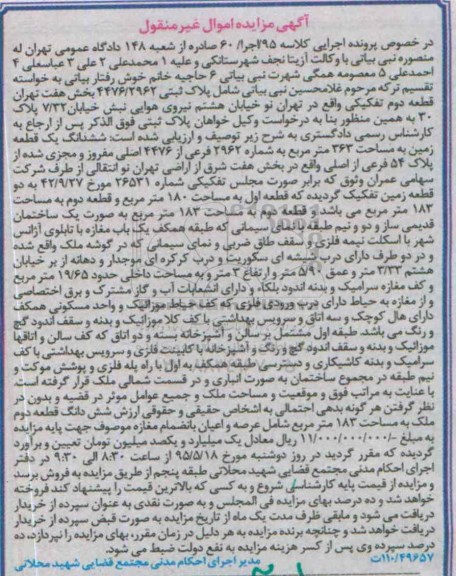 آگهی مزایده اموال غیر منقول
در خصوص پرونده اجرایی کلاسه ۹۵اجرا/۶۰ صادره از شعبه ۱۴۸ دادگاه عمومی تهران له
منصوره نبی بیاتی با وکالت آزیتا نجف شهرستانکی و علیه ۱ محمدعلی ۲ علی ۳ عباسعلی ۴
احمدعلی ۵ معصومه همگی شهرت نبی بیاتی ۶ حاجیه خانم خوش رفتار بیاتی به خواسته
تقسیم ترکه مرحوم غلامحسین نبی بیاتی شامل پلاک ثبتی ۴۴۷۶/۲۹۶۲ بخش هفت تهران
قطعه دوم تفکیکی واقع در تهران نو خیابان هشتم نیروی هوایی نبش خیابان ۷/۳۲ پلاک
۳۰ به همین منظور بنا به درخواست وکیل خواهان پلاک ثبتی فوق الذکر پس از ارجاع به
کارشناس رسمی دادگستری به شرح زیر توصیف و ارزیابی شده است: ششدانگ یک قطعه
زمین به مساحت ۳۶۳ متر مربع به شماره ۲۹۶۲ فرعی از ۴۴۷۶ اصلی مفروز و مجزی شده از
پلاک ۵۴ فرعی از اصلی واقع در بخش هفت شرق از اراضی تهران نو انتقالی از طرف شرکت
سهامی عمران وثوق که برابر صورت مجلس تفکیکی شماره ۲۶۵۳۱ مورخ ۴۲/۹/۲۷ به دو
قطعه زمین تفکیک گردیده که قطعه اول به مساحت ۱۸۰ متر مربع و قطعه دوم به مساحت
۱۸۳ متر مربع می باشد و قطعه دوم به مساحت ۱۸۳ متر مربع به صورت یک ساختمان
قدیمی ساز و دو و نیم طبقه با نمای سیمانی که طبقه همکف یک باب مغازه با تابلوی آژانس
شهر با اسکلت نیمه فلزی و سقف طاق ضربی و نمای سیمانی که در گوشه ملک واقع شده
و در دو طرف دارای درب شیشه ای سکوریت و درب کرکره ای موجدار و دهانه از بر خیابان
هشتم ۳/۳۳ متر و عمق ۵/۹۰ متر و ارتفاع ۳ متر و به مساحت داخلی حدود ۱۹/۶۵ متر مربع
و کف مغازه سرامیک و بدنه اندود بلکا، و دارای انشعابات آب و گاز مشترک و برق اختصاصی
و از مغازه به حیاط دارای درب ورودی فلزی که کف حیاط موزائیک و واحد مسکونی همکف
دارای هال کوچک و سه اتاق و سرویس بهداشتی با کف کلا موزائیک و بدنه و سقف اندود گچ
و رنگ می باشد. طبقه اول مشتمل بر سالن و آشپزخانه بسته و دو اتاق که کف سالن و اتاقها
موزائیک و بدنه و سقف اندود گچ و رنگ و آشپزخانه با کابینت فلزی و سرویس بهداشتی با کف
سرامیک و بدنه کاشیکاری و دسترسی طبقه همکف به اول با راه پله فلزی و پوشش موکت و
نیم طبقه در مجموع ساختمان به صورت انباری و در قسمت شمالی ملک قرار گرفته است.
با عنایت به مراتب فوق و موقعیت و مساحت ملک و جمیع عوامل موثر در قضیه و بدون در
نظر گرفتن هر گونه بدهی احتمالی به اشخاص حقیقی و حقوقی ارزش شش دانگ قطعه دوم
ملک به مساحت ۱۸۳ متر مربع شامل عرصه و اعیان بانضمام مغازه موصوف جهت پایه مزایده
به مبلغ ۱۱/۰۰۰/۰۰۰/۰۰۰/- ریال معادل یک میلیارد و یکصد میلیون تومان تعیین و برآورد
گردیده که مقرر گردید در روز دوشنبه مورخ ۹۵/۵/۱۸ از ساعت ۸:۳۰ الی ۹:۳۰ در دفتر
اجرای احکام مدنی مجتمع قضایی شهید محلاتی طبقه پنجم از طریق مزایده به فروش برسد
و مزایده از قیمت پایه کارشناسی شروع و به کسی که بالاترین قیمت را پیشنهاد کند فروخته
خواهد شد و ده درصد بهای مزایده فی المجلس و به صورت نقدی به عنوان سپرده از خریدار
دریافت می شود و مابقی ظرف مدت یک ماه از تاریخ مزایده به صورت قبض سپرده از خریدار
دریافت خواهد شد و چنانچه برنده مزایده به هر دلیل در زمان مقرر، بهای مزایده را نپردازد، ده
درصد سپرده وی پس از کسر هزینه مزایده به نفع دولت ضبط می شود.
۱۱۰/۴۹۶۵۷ مدیر اجرای احکام مدنی مجتمع قضایی شهید محلاتی